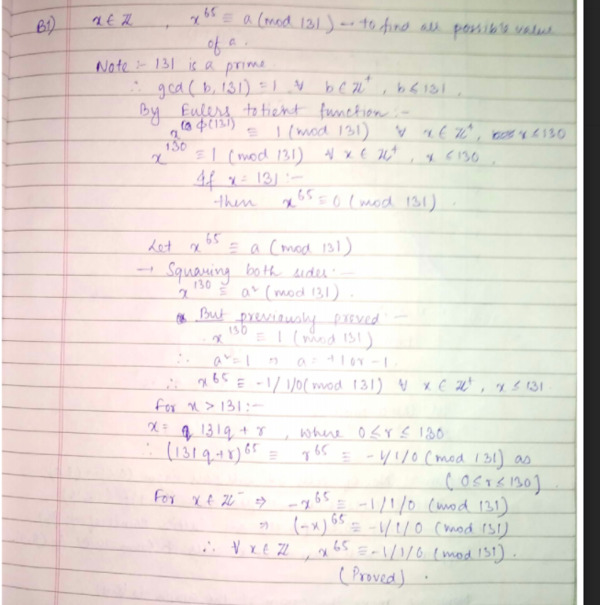 B1) x ∈ ℤ , x^65 ≡ a (mod 131) → to find all possible value
of a.
Note :- 131 is a prime.
∴ gcd(b, 131) = 1 ∀ b ∈ ℤ⁺, b < 131.
By Eulers totient function :-
x^φ(131) ≡ 1 (mod 131) ∀ x ∈ ℤ⁺, x ≤ 130
x^130 ≡ 1 (mod 131) ∀ x ∈ ℤ⁺, x ≤ 130.
If x = 131 :-
then x^65 ≡ 0 (mod 131).
Let x^65 ≡ a (mod 131)
→ Squaring both sides :-
x^130 ≡ a² (mod 131).
But previously proved :-
x^130 ≡ 1 (mod 131)
∴ a² = 1 ⇒ a = +1 or -1.
∴ x^65 ≡ -1/1/0 (mod 131) ∀ x ∈ ℤ⁺, x ≤ 131
For x > 131 :-
x = 131q + r , where 0 ≤ r ≤ 130
∴ (131q + r)^65 ≡ r^65 ≡ -1/1/0 (mod 131) as
(0 ≤ r ≤ 130)
For x ∈ ℤ⁻ ⇒ -x^65 ≡ -1/1/0 (mod 131)
⇒ (-x)^65 ≡ -1/1/0 (mod 131)
∴ ∀ x ∈ ℤ, x^65 ≡ -1/1/0 (mod 131).
(Proved).